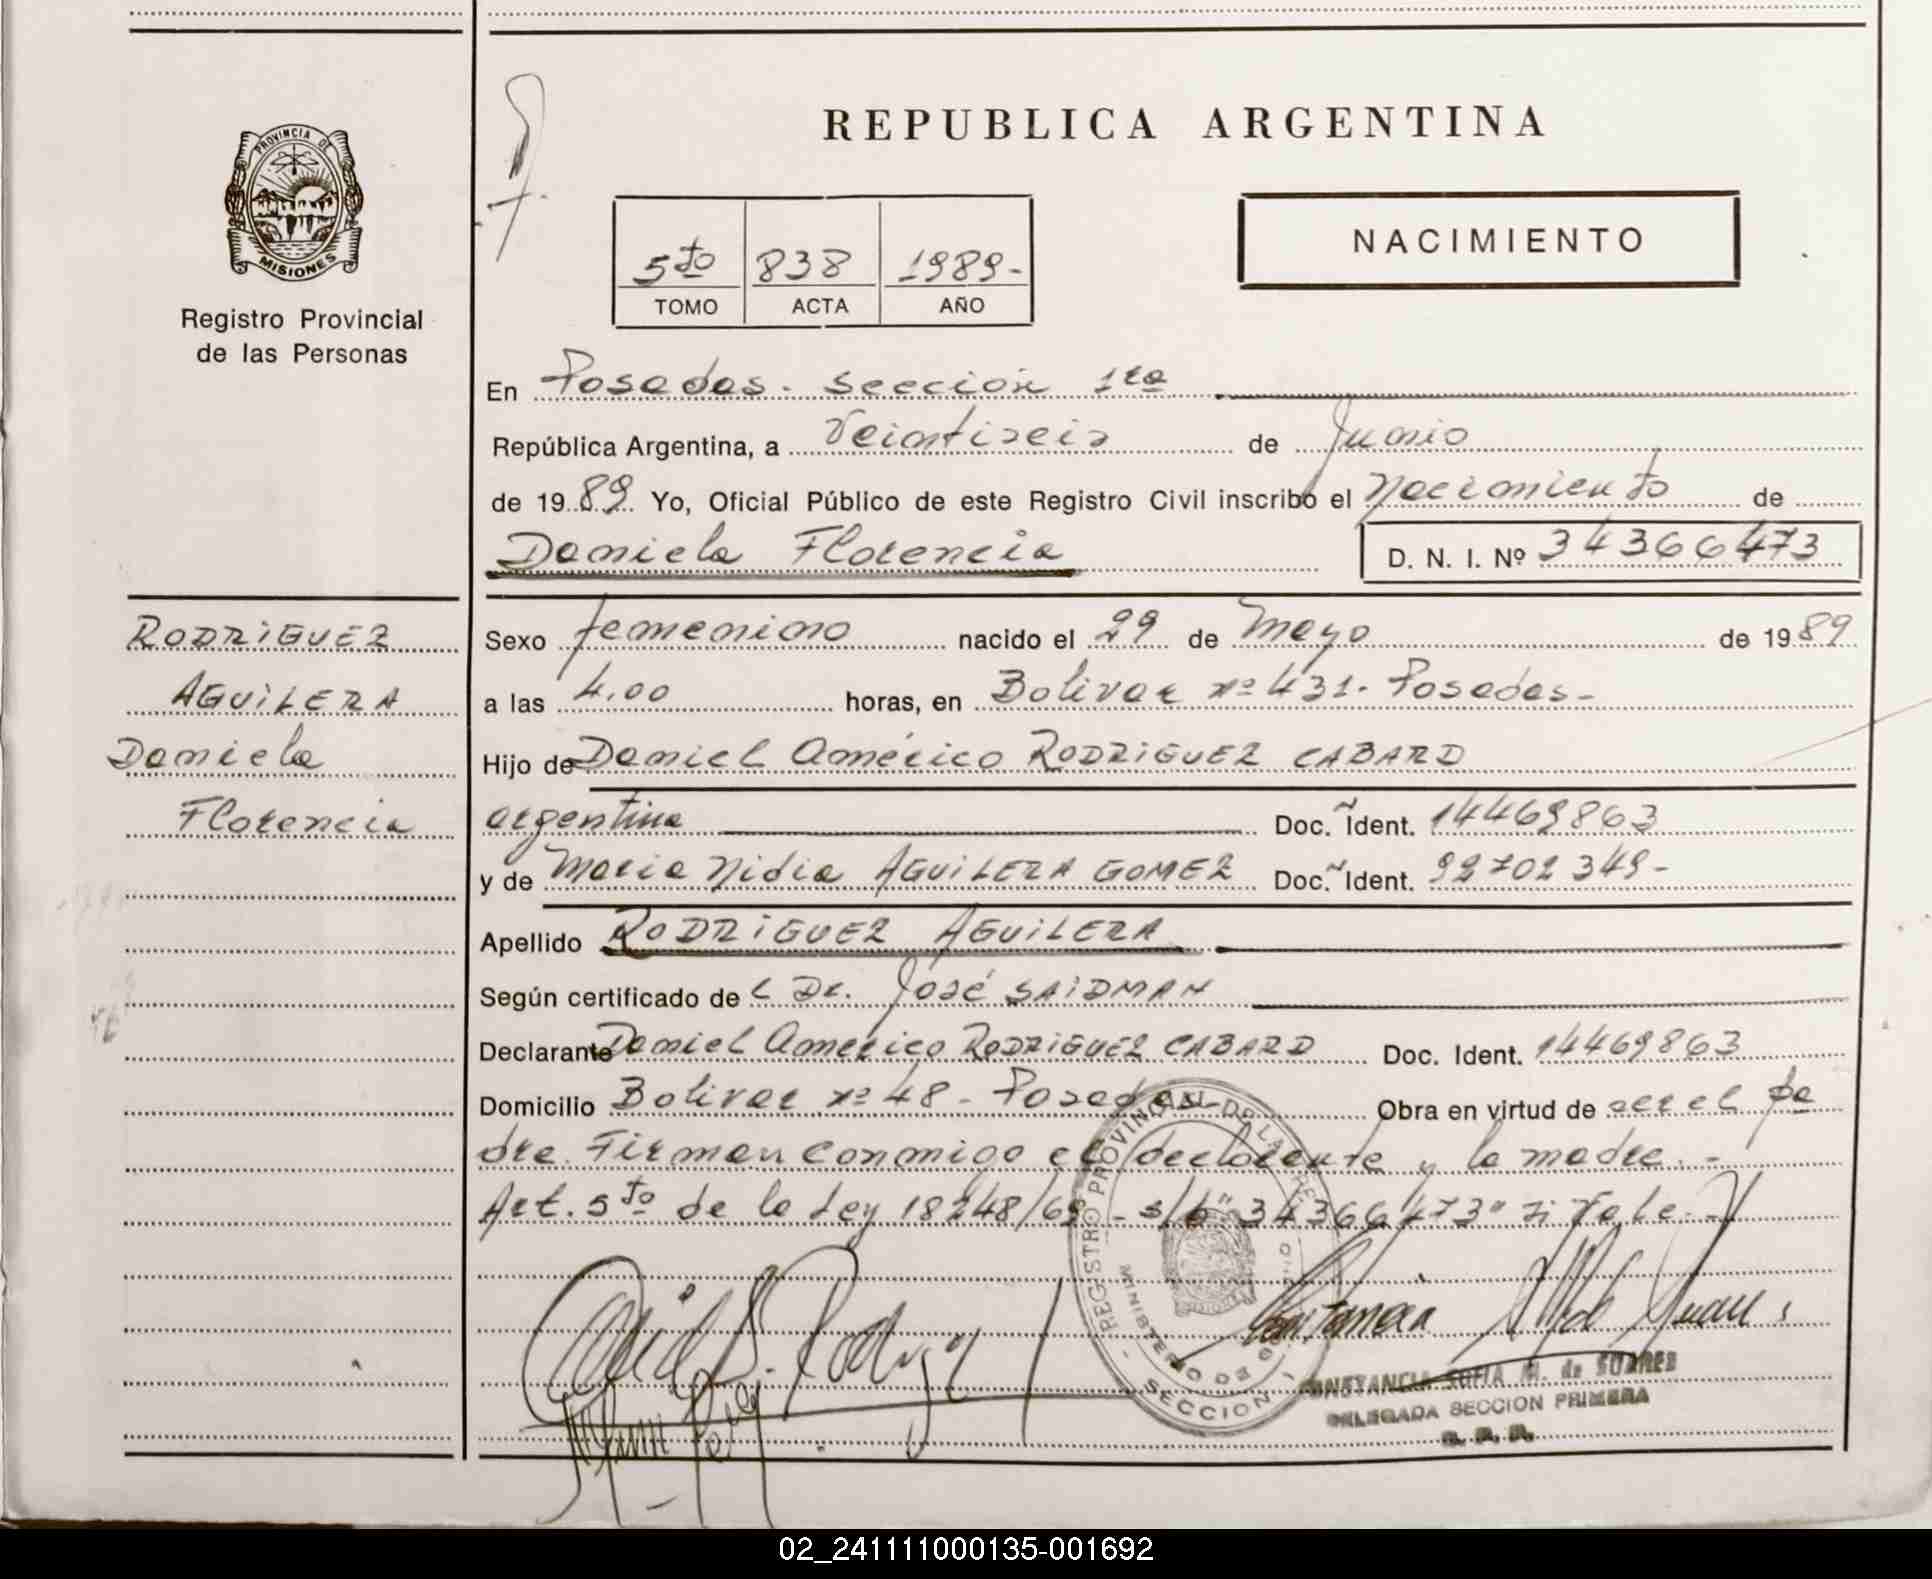 PROVINCIA DE
MISIONES
Registro Provincial
de las Personas
RODRIGUEZ
AGUILERA
Daniela
Florencia
REPUBLICA ARGENTINA
5to 838 1989-
TOMO ACTA AÑO
NACIMIENTO
En Posadas. Sección 1ra
República Argentina, a Veintiseis de Junio
de 1989. Yo, Oficial Público de este Registro Civil inscribo el Nacimiento de
Daniela Florencia D. N. I. Nº 34366473
Sexo femenino nacido el 29 de Mayo de 1989
a las 4.00 horas, en Bolivar nº 431. Posadas-
Hijo de Daniel Américo RODRIGUEZ CABARD
argentina Doc. Ident. 14469863
y de Maria Nidia AGUILERA GOMEZ Doc. Ident. 92702349-
Apellido RODRIGUEZ AGUILERA
Según certificado de l Dr. José SAIDMAN
Declarante Daniel Américo RODRIGUEZ CABARD Doc. Ident. 14469863
Domicilio Bolivar nº 48 - Posadas- Obra en virtud de ser el pa
dre. Firman conmigo el declarante y la madre.-
Art. 5to de la Ley 18248/69 - s/b "34366473" Vale.-
REGISTRO PROVINCIAL DE LAS PERSONAS
MINISTERIO DE GOBIERNO
- SECCION 1
CONSTANCIA SOFIA M. de SUAREZ
DELEGADA SECCION PRIMERA
R. P. P.
02_241111000135-001692